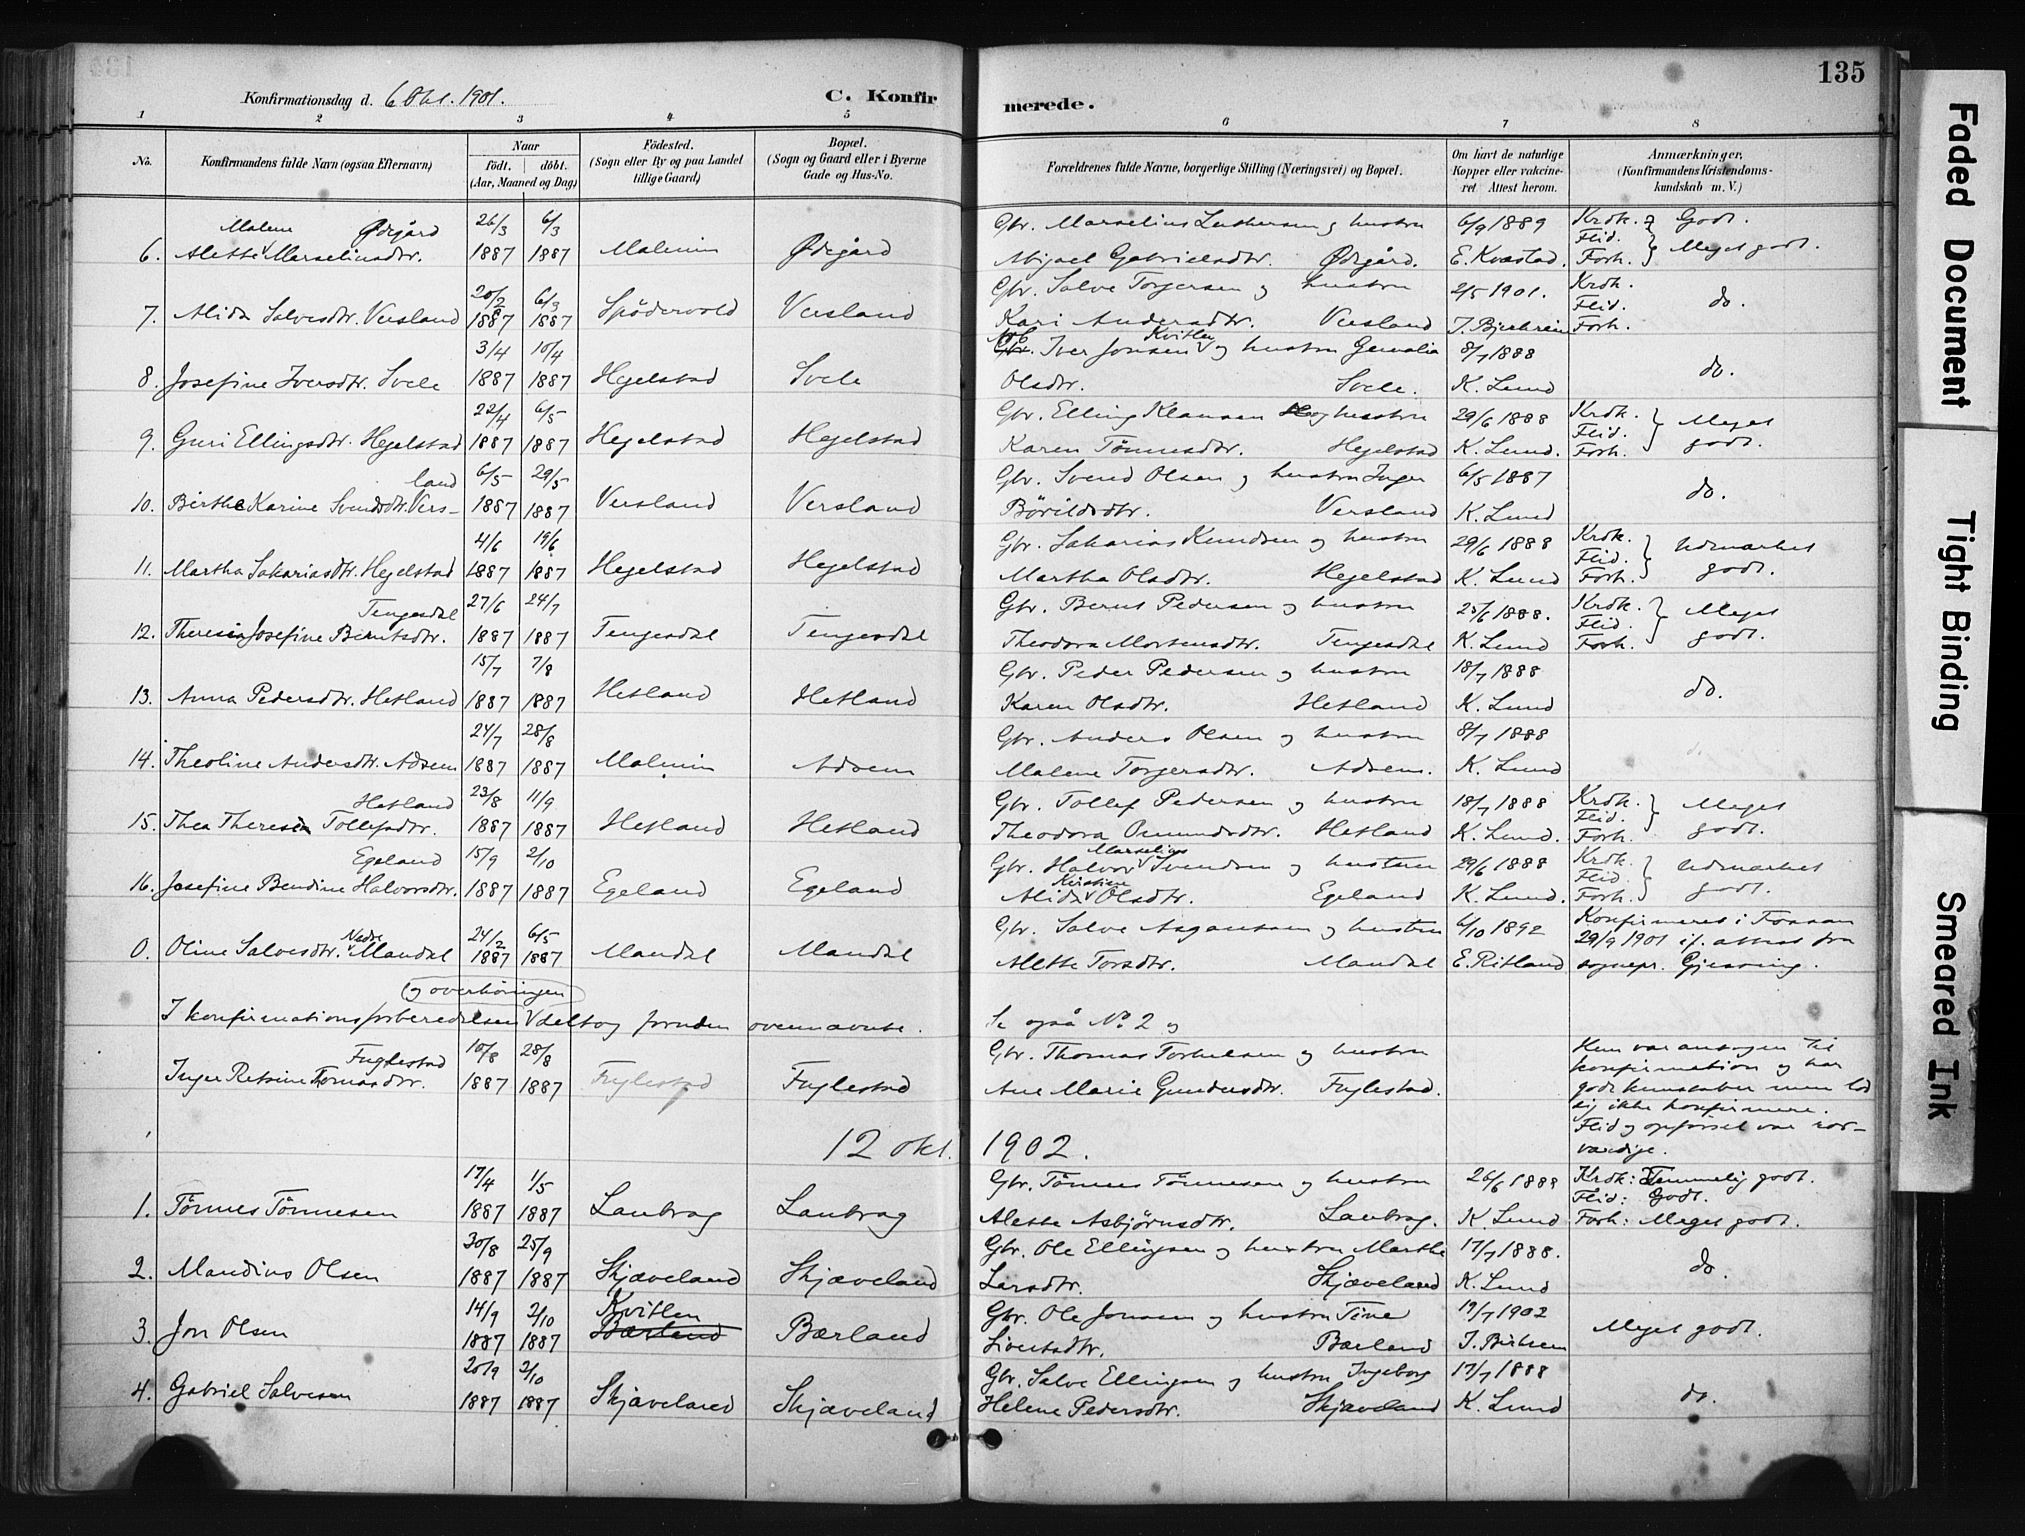 135
Konfirmationsdag d. 6 Okt. 1901.
C. Konfirmerede.
1 2 3 4 5 6 7 8
No.
Konfirmandens fulde Navn (ogsaa Efternavn)
Naar
født. døbt.
(Aar, Maaned og Dag)
Fødested.
(Sogn eller By og paa Landet tillige Gaard)
Bopæl.
(Sogn og Gaard eller i Byerne Gade og Hus-No.
Forældrenes fulde Navne, borgerlige Stilling (Næringsvei) og Bopæl.
Om havt de naturlige Kopper eller vaccineret Attest herom.
Anmærkninger.
(Konfirmandens Kristendomskundskab m. V.)
Malene Ødegård 26/3 6/3 Gbr. Marselius Luthersen og hustru 6/9 1889 Krdk. Godt.
6. Alette Marseliusdtr. 1887 1887 Malmin Ødegård Abigael Gabrielsdtr. Ødegård. E. Kvæstad. Flid. Forh. Meget godt.
20/2 6/3 Gbr. Salve Torgersen og hustru 2/5 1901. Krdk.
7. Alida Salvesdtr. Versland 1887 1887 Spødervold Versland Kari Andersdtr. Versland Flid. Forh. do.
3/4 10/4 Iver Jonsen Kvitlen og hustru 8/7 1888
8. Josefine Iversdtr. Svele 1887 1887 Hegelstad Svele Olsdtr. Svele. K. Lund do.
22/4 6/5 Gbr. Elling Klausen og hustru 29/6 1888 Krdk. Meget
9. Guri Ellingsdtr. Hegelstad 1887 1887 Hegelstad Hegelstad Karen Tønnesdtr. Hegelstad K. Lund. Flid. Forh. godt.
land 6/5 29/5 Gbr. Svend Olsen og hustru Inger 6/5 1887
10. Birthe Karine Svendsdtr. Vers- 1887 1887 Versland Versland Børildsdtr. Versland K. Lund do.
4/6 19/6 Gbr. Sakarias Knudsen og hustru 29/6 1888 Krdk. Udmærket
11. Martha Sakariasdtr. Hegelstad 1887 1887 Hegelstad Hegelstad Martha Olsdtr. Hegelstad K. Lund Flid. Forh. godt.
Tengesdal 27/6 24/7 Gbr. Bernt Pedersen og hustru 25/6 1888. Krdk. Meget
12. Theresia Josefine Berntsdtr. 1887 1887 Tengesdal Tengesdal Theodora Mortensdtr. Tengesdal K. Lund Flid. Forh. godt.
15/7 7/8 Gbr. Peder Pedersen og hustru 18/7 1888
13. Anna Pedersdtr. Hetland 1887 1887 Hetland Hetland Karen Olsdtr. Hetland K. Lund do.
24/7 28/8 Gbr. Anders Olsen og hustru 8/7 1888
14. Theoline Andersdtr. Adsem 1887 1887 Malmin Adsem Malene Torgersdtr. Adsem. K. Lund
Hetland 23/8 11/9 Gbr. Tollef Pedersen og hustru 18/7 1888 Krdk. Meget
15. Thea Theresia Tollefsdtr. 1887 1887 Hetland Hetland Theodora Omundsdtr. Hetland K. Lund. Flid. Forh. godt.
Egeland 15/9 2/10 Gbr. Halvor Marselius Svendsen og hustru 29/6 1888 Krdk. Udmærket
16. Josefine Bendine Halvorsdtr. 1887 1887 Egeland Egeland Alida Kirstine Olsdtr. Egeland K. Lund. Flid. Forh. godt.
24/2 6/5 Gbr. Salve Asgautsen og hustru 6/10 1892 Konfirmeret i Fossan
0. Oline Salvesdtr. Nedre Mandal 1887 1887 Mandal Mandal Alette Torsdtr. Mandal E. Ritland 29/9 1901 if. attest fra sognepr. Gjessing.
og overhøringen
I konfirmationsforberedelsen deltog foruden ovennævnte. Se også No. 2 og
Fuglestad 10/8 28/8 Gbr. Thomas Torkelsen og hustru Hun var antagen til
Inger Retrine Tomasdtr. 1887 1887 Fuglestad Fuglestad Ane Marie Gundersdtr. Fuglestad. konfirmation og har
gode kunskaber men lod
sig ikke konfirmere.
Flid og opførsel var rosværdige.
12 okt. 1902.
17/4 1/5 Gbr. Tønnes Tønnesen og hustru 26/6 1888 Krdk: Temmelig godt.
1. Tønnes Tønnesen 1887 1887 Lautrag Lautrag Alette Asbjørnsdtr. Lautrag. K Lund Flid: Godt. Forh: Meget godt.
30/8 25/9 Gbr. Ole Ellingsen og hustru Marthe 17/7 1888.
2. Mandius Olsen 1887 1887 Skjæveland Skjæveland Larsdtr. Skjæveland K. Lund do
14/9 2/10 Kvitlen Gbr. Ole Jonsen og hustru Tine 19/7 1902
3. Jon Olsen 1887 1887 Bærland Bærland Sivertsdtr. Bærland Meget godt.
20/9 2/10 Gbr. Salve Ellingsen og hustru Ingeborg 17/7 1888
4. Gabriel Salvesen 1887 1887 Skjæveland Skjæveland Helene Pedersdtr. Skjæveland K. Lund do.
Faded Document
Tight Binding
Smeared Ink